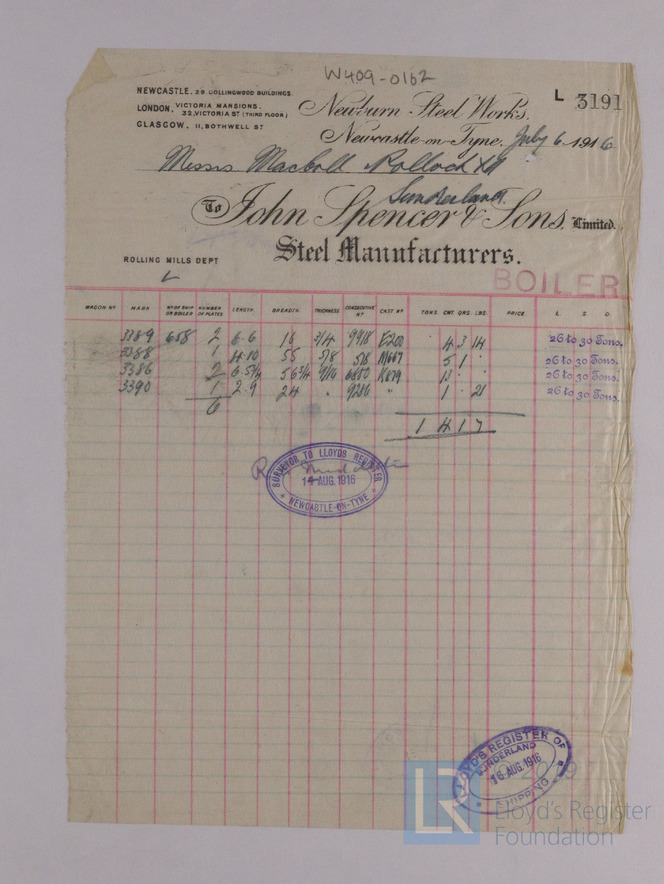 W409-0162
NEWCASTLE, 29 COLLINGWOOD BUILDINGS.
LONDON, VICTORIA MANSIONS. 32, VICTORIA ST (THIRD FLOOR)
GLASGOW, 11, BOTHWELL ST
L 3191
Newburn Steel Works.
Newcastle-on-Tyne, July 6 1916
Messrs Maccoll Pollock
Sunderland.
To John Spencer & Sons, Limited.
Steel Manufacturers.
ROLLING MILLS DEPT
L
BOILER
WAGON Nº MARK Nº OF SHIP OR BOILER NUMBER OF PLATES LENGTH BREADTH THICKNESS CONSECUTIVE Nº CAST Nº TONS. CWT. QRS. LBS. PRICE L. S. D.
3389 658 2 6.6 16 3/4 9918 E200 4 3 14 26 to 30 Tons.
3388 1 4.10 55 5/8 518 5 1 26 to 30 Tons.
3386 2 6.5 3/4 56 3/4 9/16 K879 26 to 30 Tons.
3390 1 2.9 24 " " 1 . 21 26 to 30 Tons.
6
1 4 1 7
SURVEYOR TO LLOYDS REGISTER
14 AUG. 1916
NEWCASTLE-ON-TYNE
LLOYD'S REGISTER OF
SUNDERLAND
16. AUG. 1916
SHIPPING
LR
Lloyd's Register
Foundation